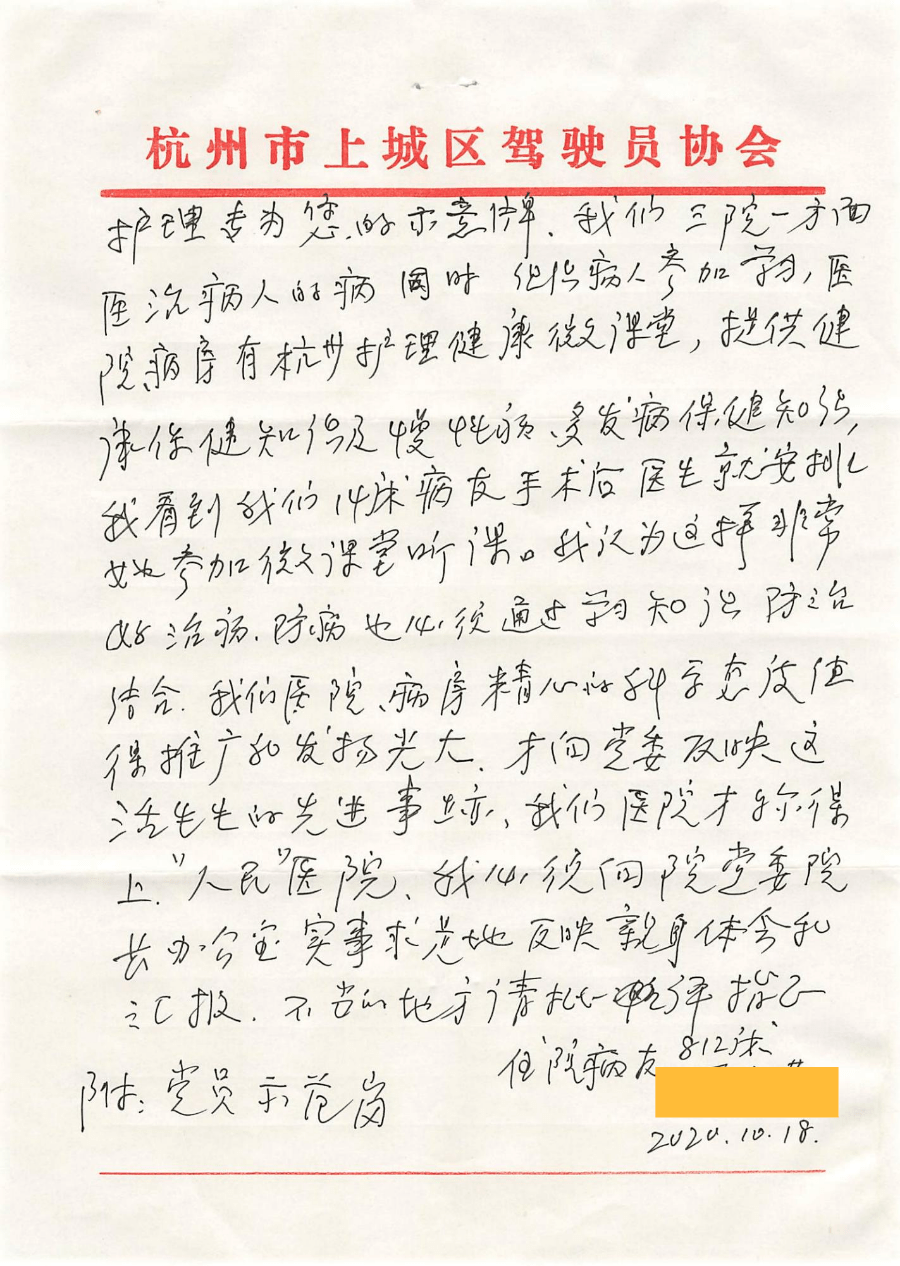 杭州市上城区驾驶员协会
护理专为您的示意牌、我们三院一方面
医治病人的病同时组织病人参加学习，医
院、病房有杭州护理健康微课堂，提供健
康保健知识及慢性病、多发病保健知识，
我看到我们14床病友手术后医生就安排
她参加微课堂听课。我认为这样非常
好治病、防病也必须通过学习知识防治
结合、我们医院、病房精心的科学态度值
得推广和发扬光大、才向党委反映这
活生生的先进事迹、我们医院才称得
上“人民”医院、我必须向院党委院
长办公室实事求是地反映亲身体会和
汇报、不当的地方请批评指正
住院病友 812床
附：党员示范岗
2020.10.18.